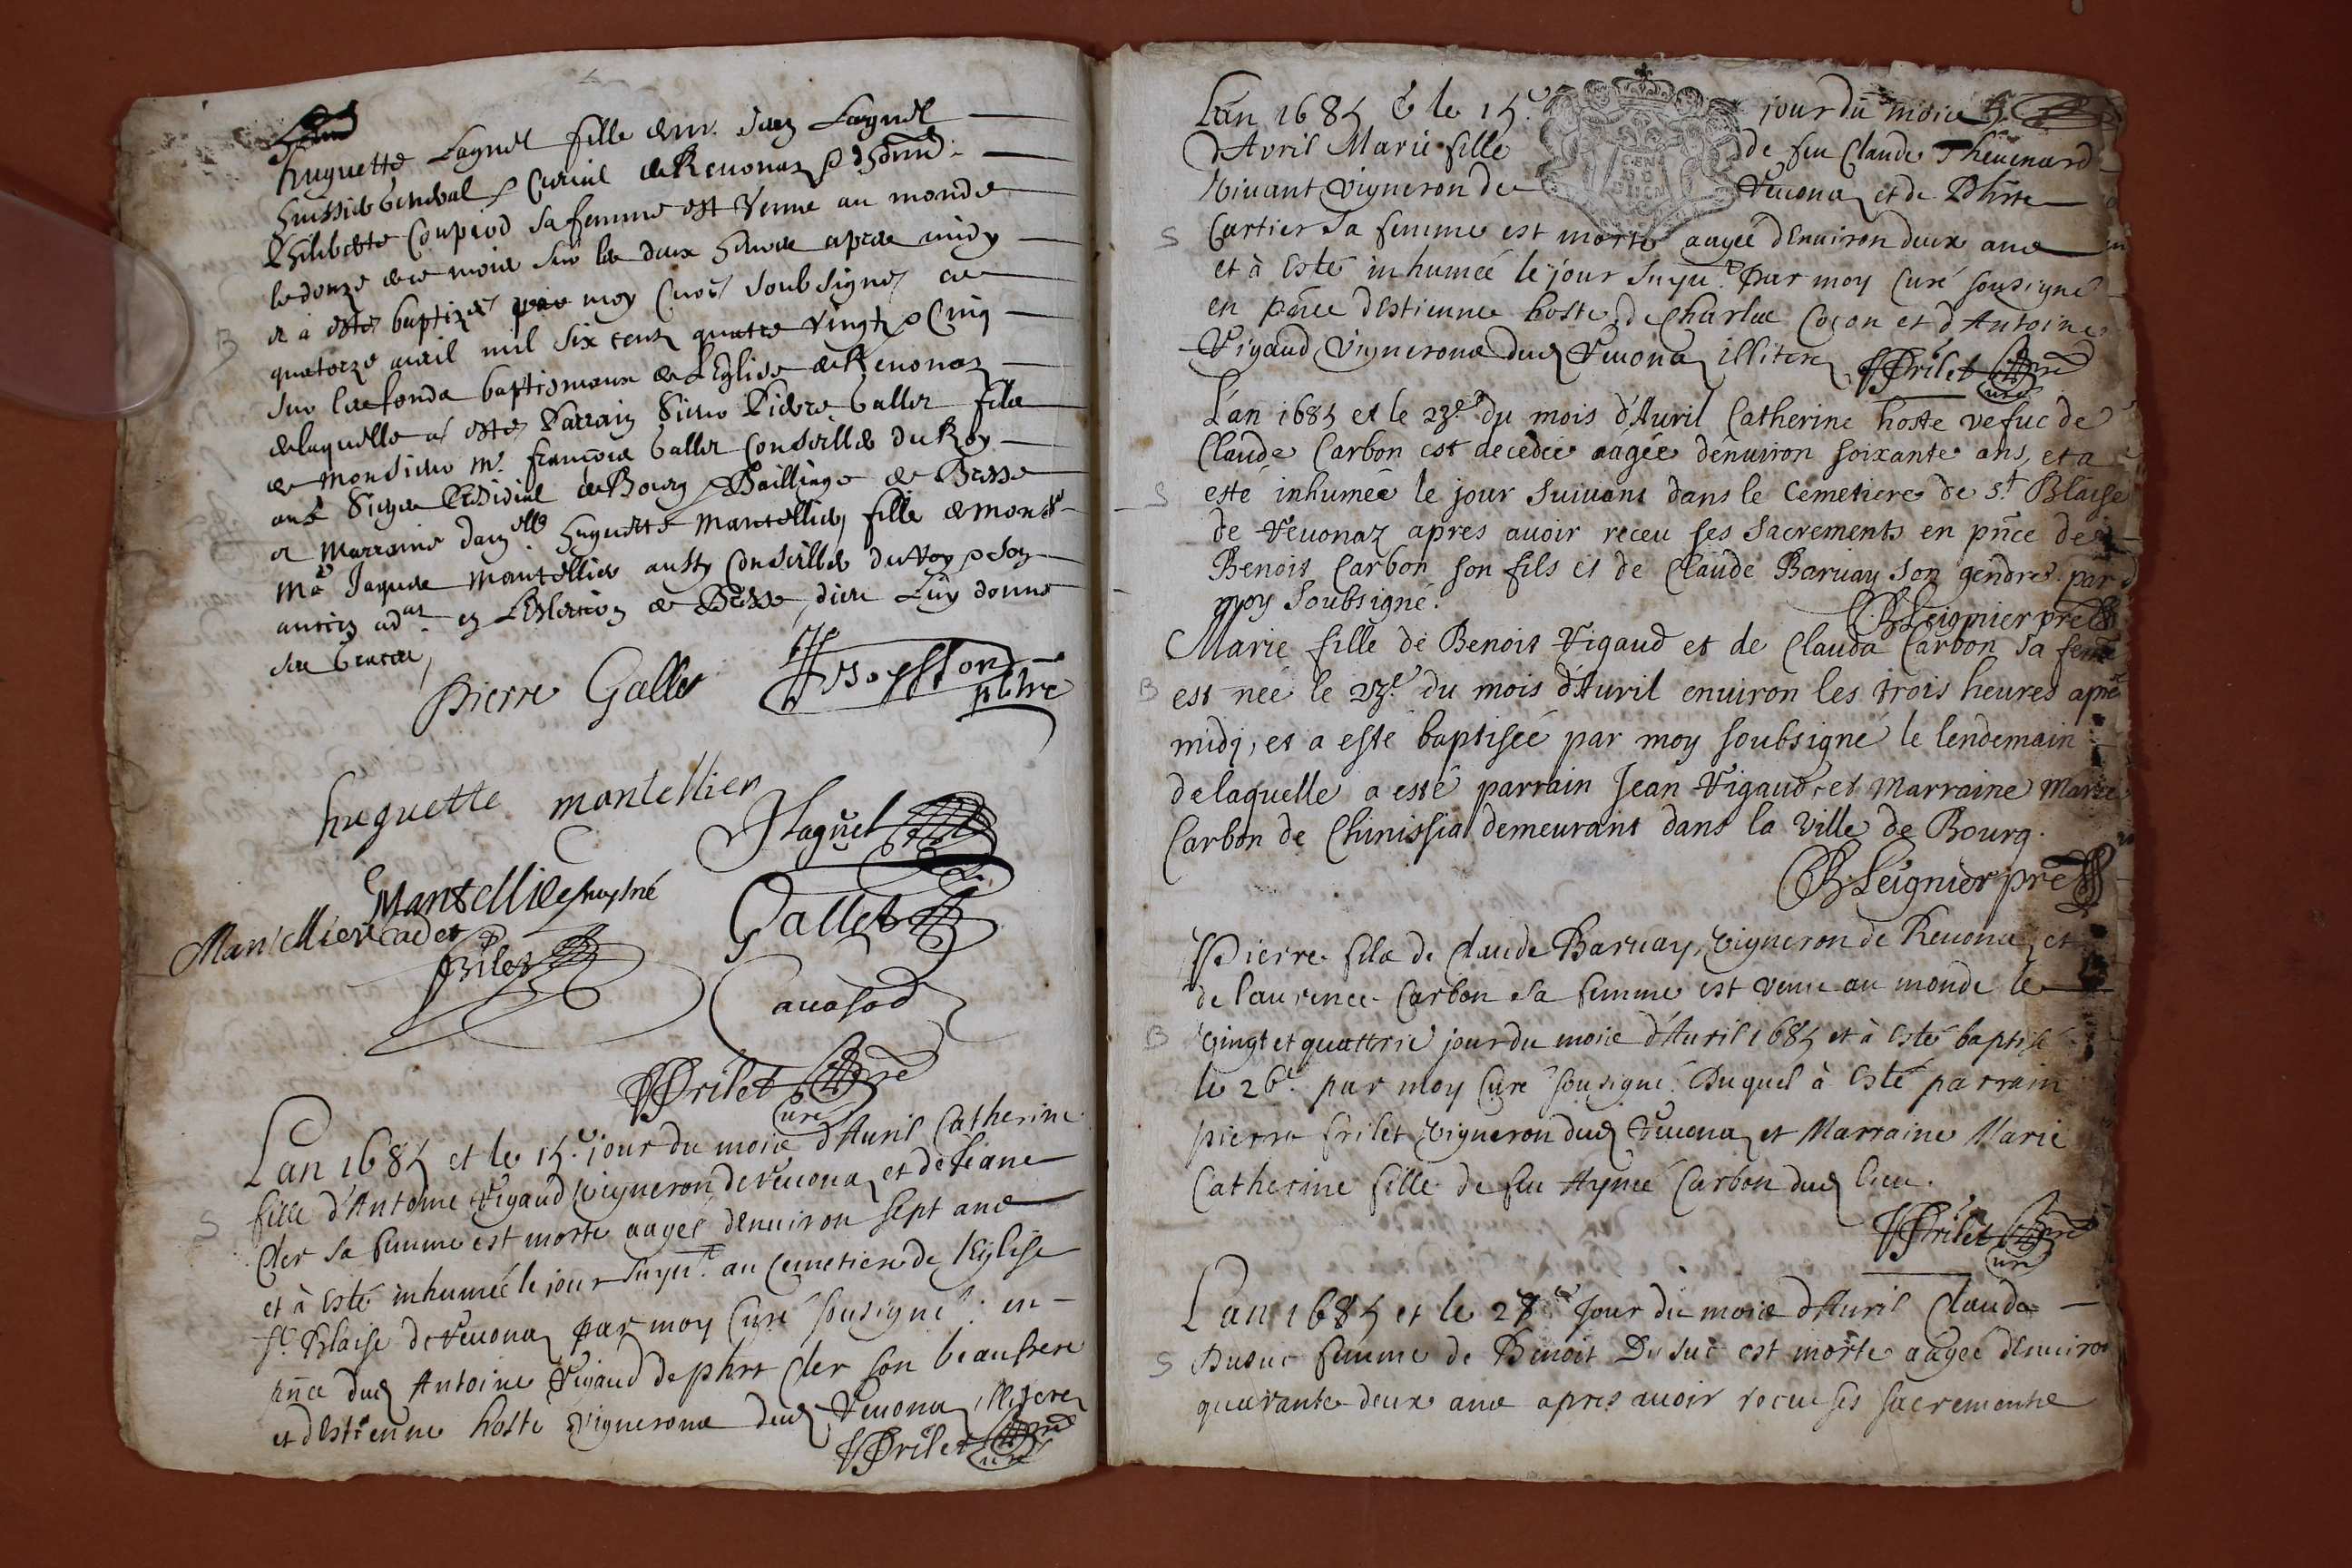 huguette Lagnel fille de mr. Jean Lagnel
huissier General & Curial de Revonaz & d'honn.
Philiberte Coupiod sa femme est venue au monde
le douze de ce mois sur les deux heures apres midy
et a esté baptizée par moy Curé soubsigné ce
B
quatorze avril mil six cents quatre vingts & Cinq
sur les fonds baptismaux de L'Eglise de Revonaz
de laquelle a esté Parrain Sieur Pierre Gallet fils
de Monsieur Mr. françois Gallet Conseiller du Roy
au Siege Presidial de Bourg & Bailliage de Bresse
et Marraine dam.lle huguette Mantellier fille de Monsr
Mre Jaques Mantellier aussy Conseiller du Roy & son
ancien ad.at en L'Eslection de Bresse, dieu Luy donne
sa Grace,
Pierre Gallet
ptbre
huguette mantellier
JLagnel
Mantellier
Mantellier cadet
Gallet
frilet
Frilet pre
Curé
Lan 1685 et le 15.e jour du mois d'Auril Catherine
fille d'Antoine Vigaud vigneron de Reuona et de Jeane
S
Cler sa femme est morte aagée d'enuiron sept ans
et à Esté inhumée le jour suyut. au Cemetiere de l'Eglise
St. Blaise de Reuona par moy Curé sousigné. en
pnce dud Antoine Vigaud de phrt Cler son beaufrere
et d'Estienne hoste vignerons dud Reuona illiteres
Frilet pre
Curé
Lan 1685 & le 15.e jour du mois
d'Avril Marie fille de feu Claude Theuenard
vivant vigneron de Reuona et de Phrte
Cartier sa femme est morte aagée d'Enuiron deux ans
S
et à Esté inhumée le jour suyut. par moy Curé sousigné
en pnce d'Estienne hoste, de Charles Coçon et d'Antoine
Vigaud vignerons dud Reuona illiteres Frilet pre
Curé
L'an 1685 et le 23.e du mois d'Auril Catherine hoste vefue de
Claude Carbon est decedée aagée d'enuiron soixante ans, et a
S
esté inhumée le jour suiuant dans le Cemetiere de St. Blaise
de Reuonaz apres auoir receu ses Sacrements en pnce de
Benoit Carbon son fils et de Claude Baruay son gendre par
moy soubsigné.
B Leignier pre
Marie fille de Benoit Vigaud et de Clauda Carbon sa feme
B
est née le 23.e du mois d'Auril enuiron les trois heures apres
midi, et a esté baptisée par moy soubsigné le lendemain
delaquelle a esté parrain Jean Vigaud, et Marraine Marie
Carbon de Chinissia demeurant dans la ville de Bourg.
B. Leignier pre
Pierre fils de Claude Baruay, vigneron de Reuona et
de laurence Carbon sa femme est venu au monde le
B
vingt et quattrie jour du mois d'Auril 1685 et à Esté baptisé
le 26.e par moy Curé sousigné. Duquel à Esté parrain
pierre frilet vigneron dud Reuona et Marraine Marie
Catherine fille de feu Aymé Carbon dud lieu.
Frilet pre
Curé
Lan 1685 et le 28.e Jour du mois d'Auril Claude
S
Dusuc femme de Benoit Du suc est morte aagée d'Enuiron
quarante deux ans apres auoir receu ses sacrements